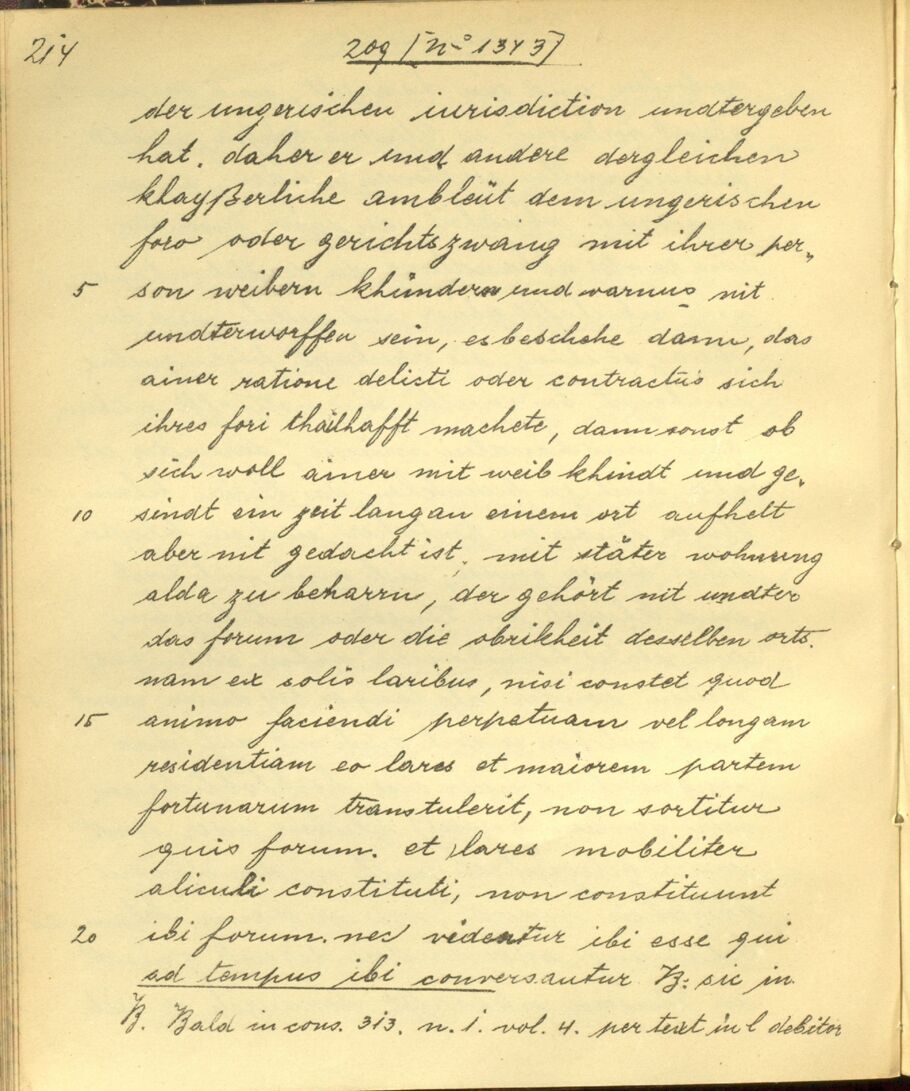 214 209 [No 1343]
der ungerischen iurisdiction undtergeben
hat. daher er und andere dergleichen
khayßerliche ambleüt dem ungerischen
foro oder gerichtszwang mit ihrer per„
5 son weibern khündern und varnus nit
undterworffen sein, es beschehe dann, das
ainer ratione delicti oder contractus sich
ihres fori thailhafft machete, dann sonst ob
sich woll ainer mit weib khindt und ge„
10 sindt ein zeit lang an einem ort aufhelt
aber nit gedacht ist, mit stäter wohnung
alda zu beharrn, der gehört nit undter
das forum oder die obrikheit desselben orts.
nam ex solis laribus, nisi constet quod
15 animo faciendi perpetuam vel longam
residentiam eo lares et maiorem partem
fortunarum transtulerit, non sortitur
quis forum. et lares mobiliter
alicubi constituti, non constituunt
20 ibi forum. nec videntur ibi esse qui
ad tempus ibi conversantur B: sic in
B. Bald in cons. 313. n. 1. vol. 4. per text in l debitor